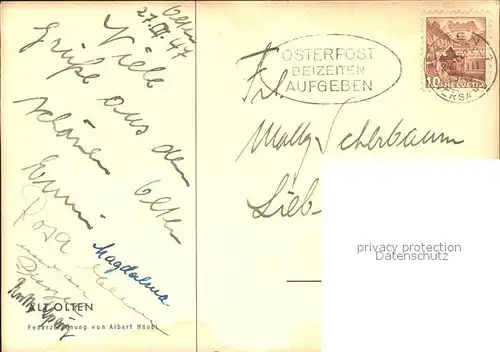 Olten
27.III.47
Viele
Grüße aus dem
schönen Olten
Emmi
Rosa
Magdalena
ALT OLTEN
Federzeichnung von Albert Häubi
OSTERPOST
BEIZEITEN
AUFGEBEN
10 HELVETIA
Frl.
Mally Scherbaum
Lieb-
privacy protection
Datenschutz